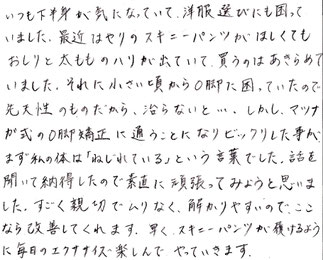 いつも下半身が気になっていて、洋服選びにも困って
いました。最近はやりのスキニーパンツがほしくても
おしりと太もものハリが出ていて、買うのはあきらめて
いました。それに小さい頃からO脚に困っていたので
先天性のものだから、治らないと…。しかし、マツナ
が式のO脚矯正に通うことになりビックリした事が、
まず私の体は「ねじれている」という言葉でした。話を
聞いて納得したので素直に頑張ってみようと思いま
した。すごく親切でムリなく、解かりやすいので、ここ
なら改善してくれます。早く、スキニーパンツが履けるよう
に毎日のエクササイズ楽しんでやっていきます。